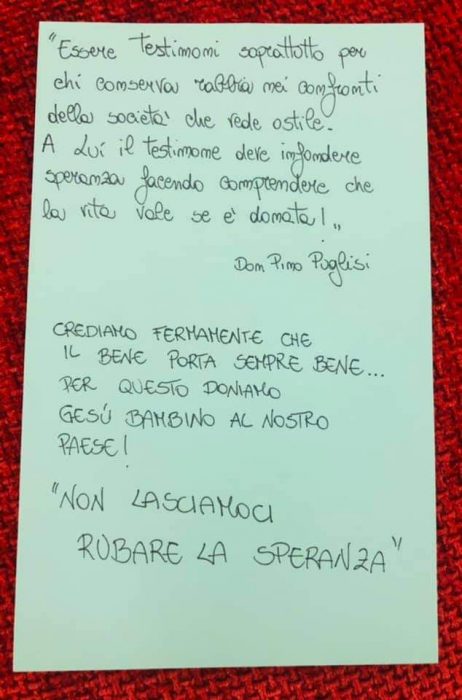 "Essere Testimoni soprattutto per
chi conserva rabbia nei confronti
della società che vede ostile.
A Lui il testimone deve infondere
speranza facendo comprendere che
la vita vale se è donata!„
Don Pino Puglisi
CREDIAMO FERMAMENTE CHE
IL BENE PORTA SEMPRE BENE...
PER QUESTO DONIAMO
GESÚ BAMBINO AL NOSTRO
PAESE!
"NON LASCIAMOCI
RUBARE LA SPERANZA"